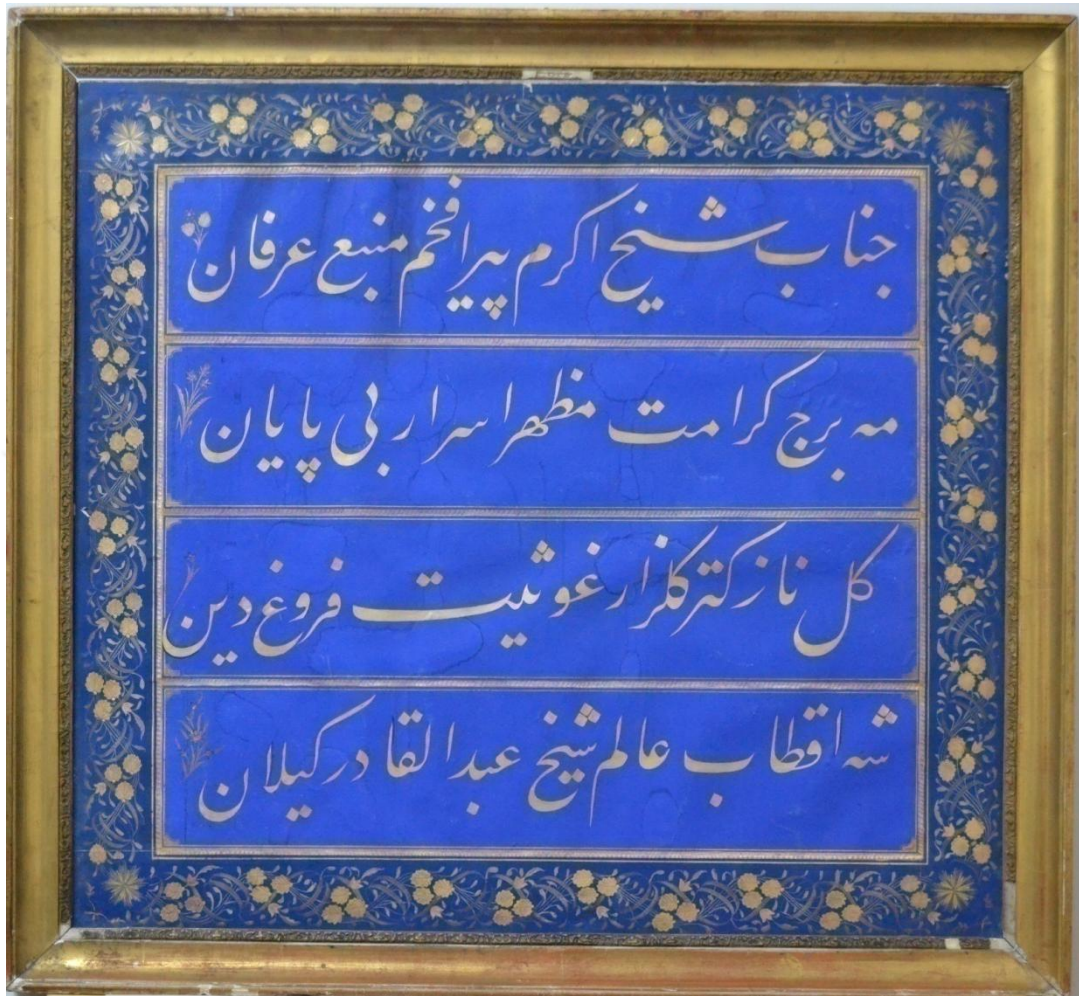 جناب شیخ اکرم پیر افخم منبع عرفان
مه برج کرامت مظهر اسرار بی پایان
کل نازکتر کلزار غوثیت فروغ دین
شه اقطاب عالم شیخ عبد القادر کیلان